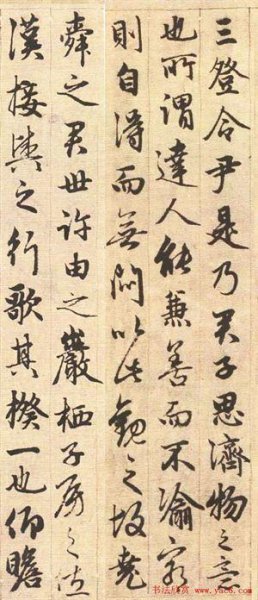 三登令尹是乃君子思濟物之意
也所謂達人能兼善而不渝窮
則自得而無悶以此觀之故堯
舜之君世許由之巖栖子房之佐
漢接輿之行歌其揆一也仰瞻
书法欣赏
www.yac8.com